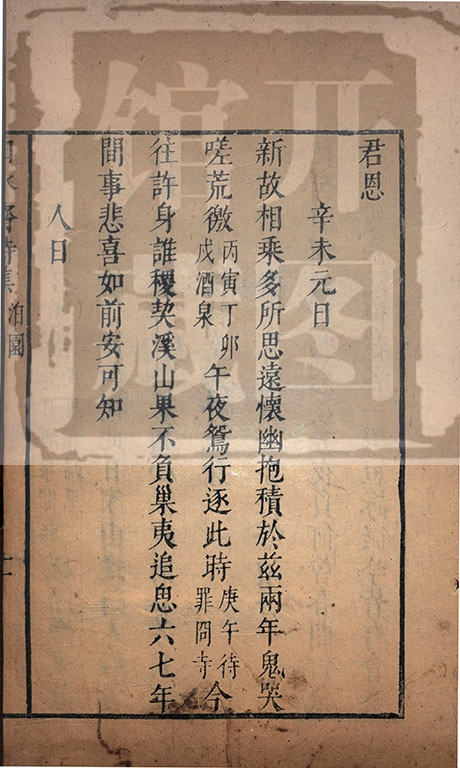 君恩
辛未元日
新故相乘多所思遠懷幽抱積於兹兩年鬼哭
嗟荒徼丙寅丁卯戊酒泉午夜鴛行逐此時庚午待罪冏寺今
往許身誰稷契溪山果不負巢夷追思六七年
間事悲喜如前安可知
人日
詩集 泊園
开图
馆藏